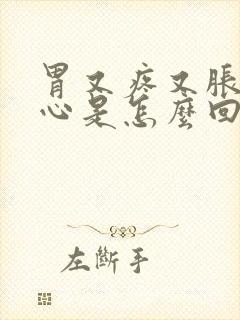 胃又疼又脹
心是怎麼回
左斷手